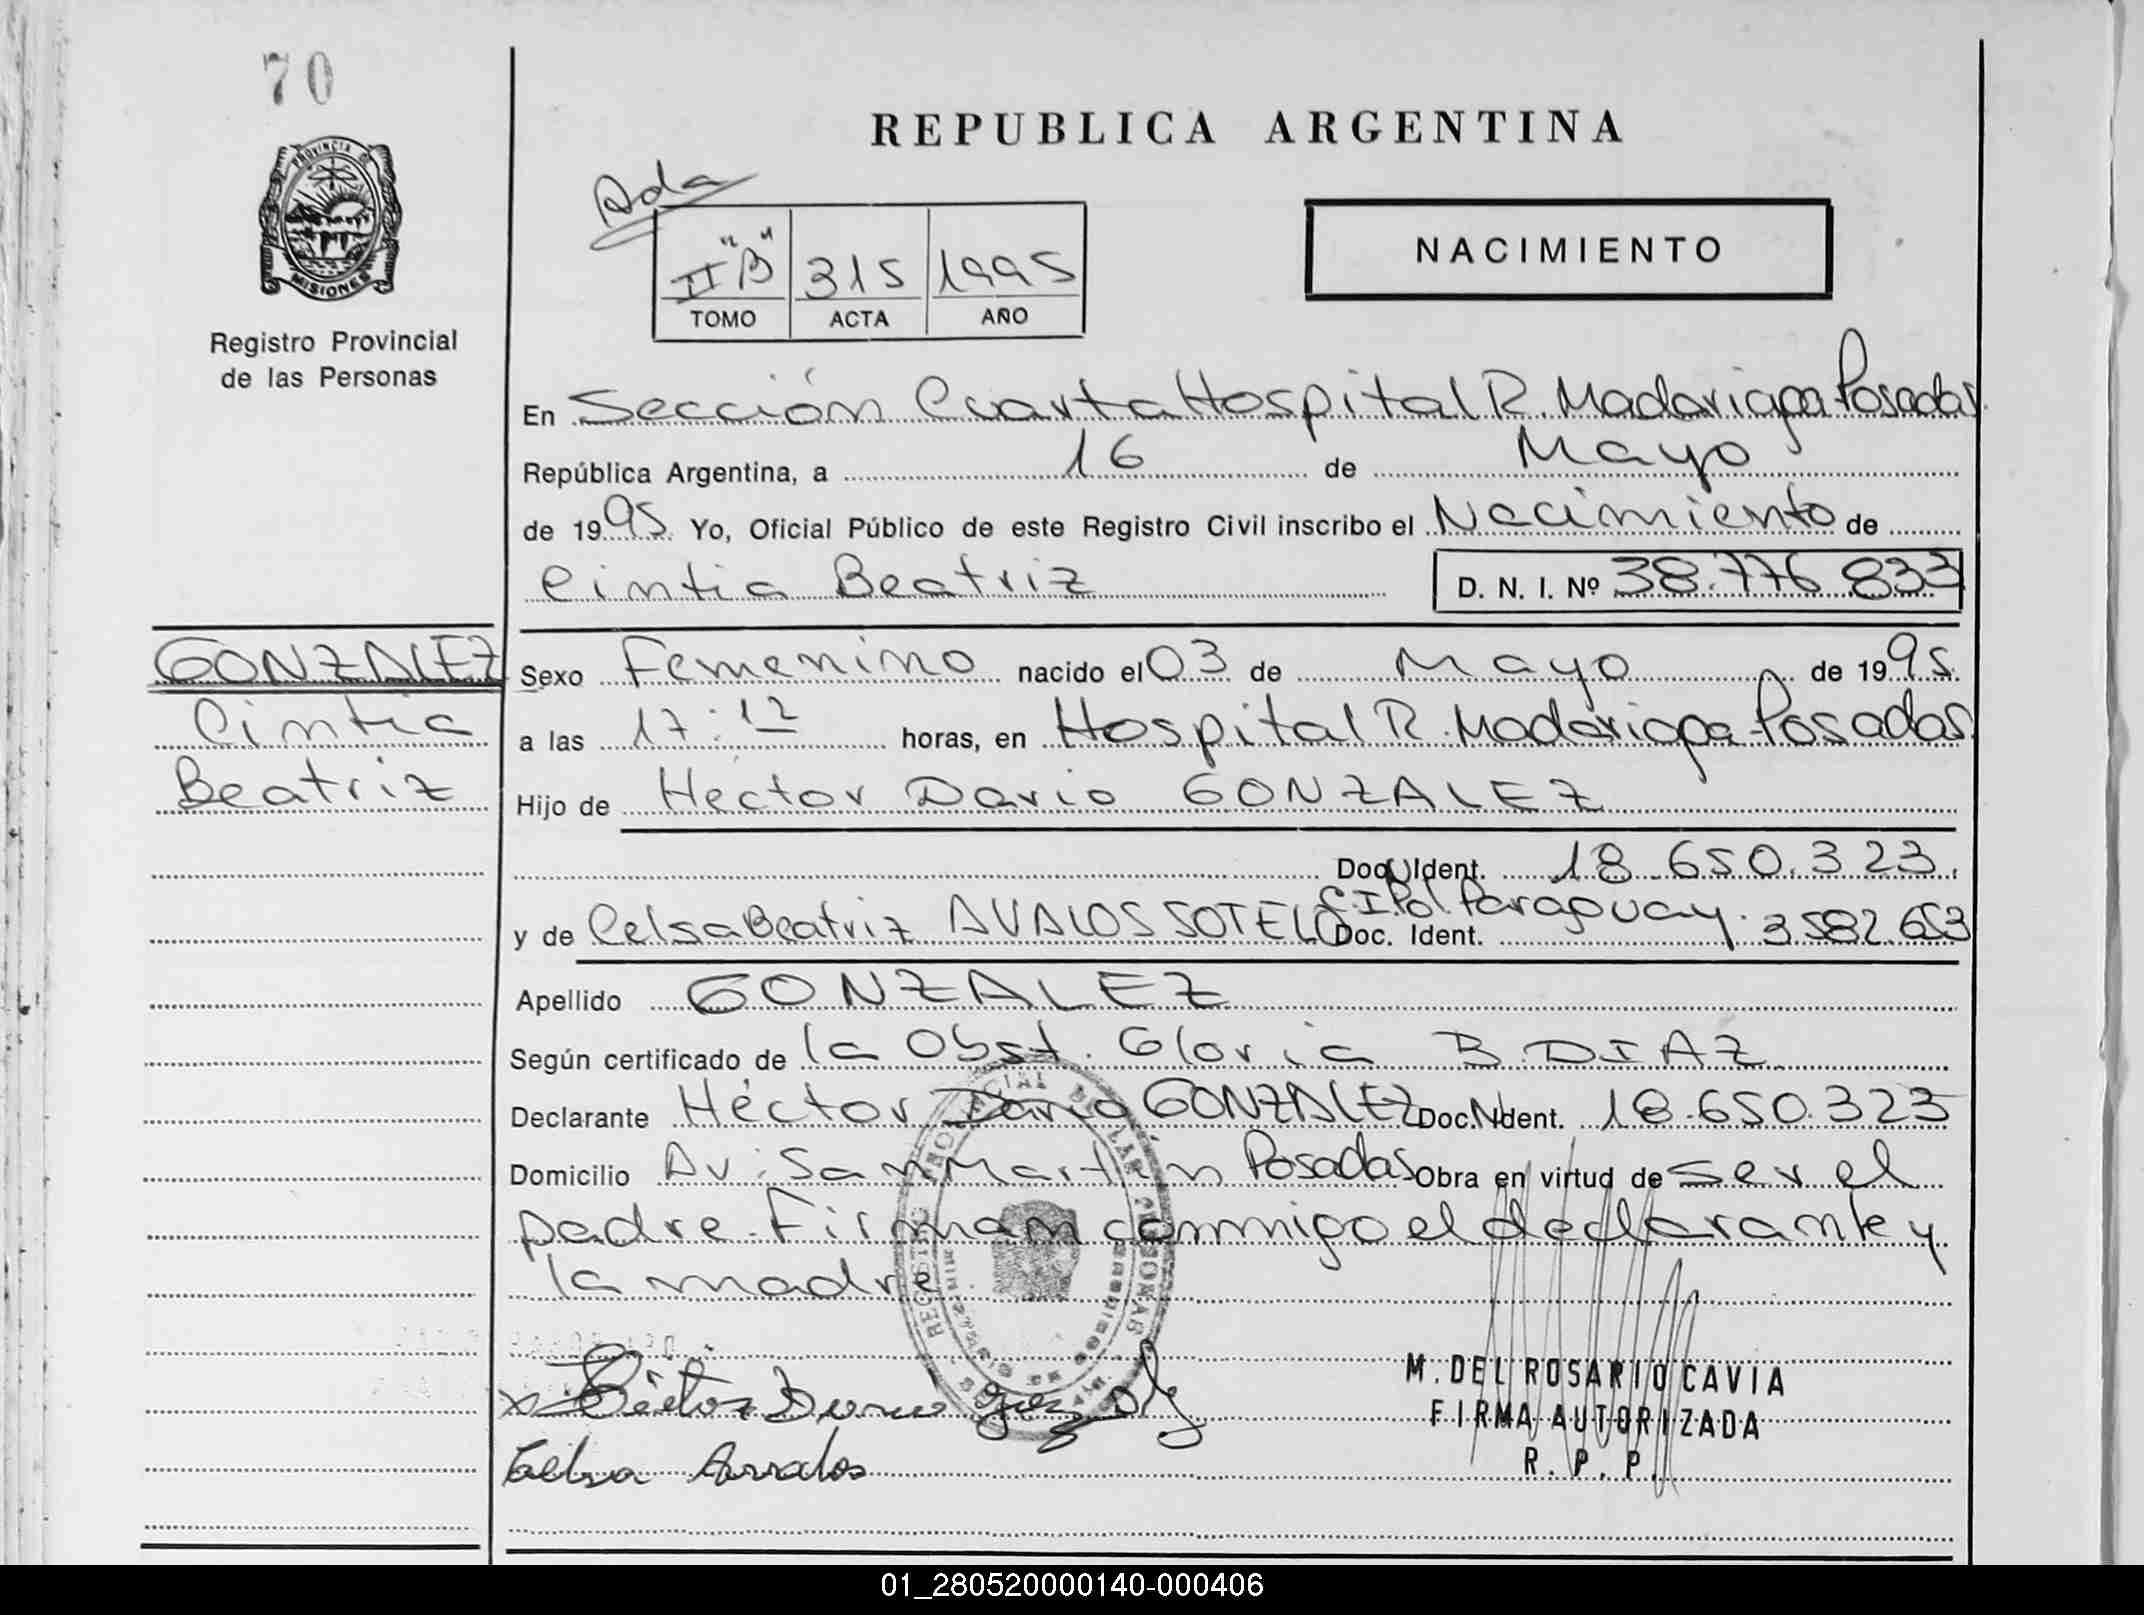 70
PROVINCIA DE
MISIONES
Registro Provincial
de las Personas
REPUBLICA ARGENTINA
Ada
II "B" 315 1995
TOMO ACTA AÑO
NACIMIENTO
En Sección Cuarta Hospital R. Madariaga Posadas
República Argentina, a 16 de Mayo
de 1995. Yo, Oficial Público de este Registro Civil inscribo el Nacimiento de
Cintia Beatriz D. N. I. Nº 38.776.833
GONZALEZ
Cintia
Beatriz
Sexo Femenino nacido el 03 de Mayo de 1995.
a las 17:12 horas, en Hospital R. Madariaga-Posadas.
Hijo de Héctor Dario GONZALEZ
Doc. Ident. 18.650.323.
C.I.Pol. Paraguay. 3582.653
y de Celsa Beatriz AVALOS SOTELO Doc. Ident.
Apellido GONZALEZ
Según certificado de la Obst. Gloria B. DIAZ
Declarante Héctor Dario GONZALEZ Doc. Ident. 18.650.323
Domicilio Av. San Martin Posadas Obra en virtud de ser el
padre. Firman conmigo el declarante y
la madre
REGISTRO PROVINCIAL DE LAS PERSONAS
M. DEL ROSARIO CAVIA
FIRMA AUTORIZADA
R. P. P.
01_280520000140-000406